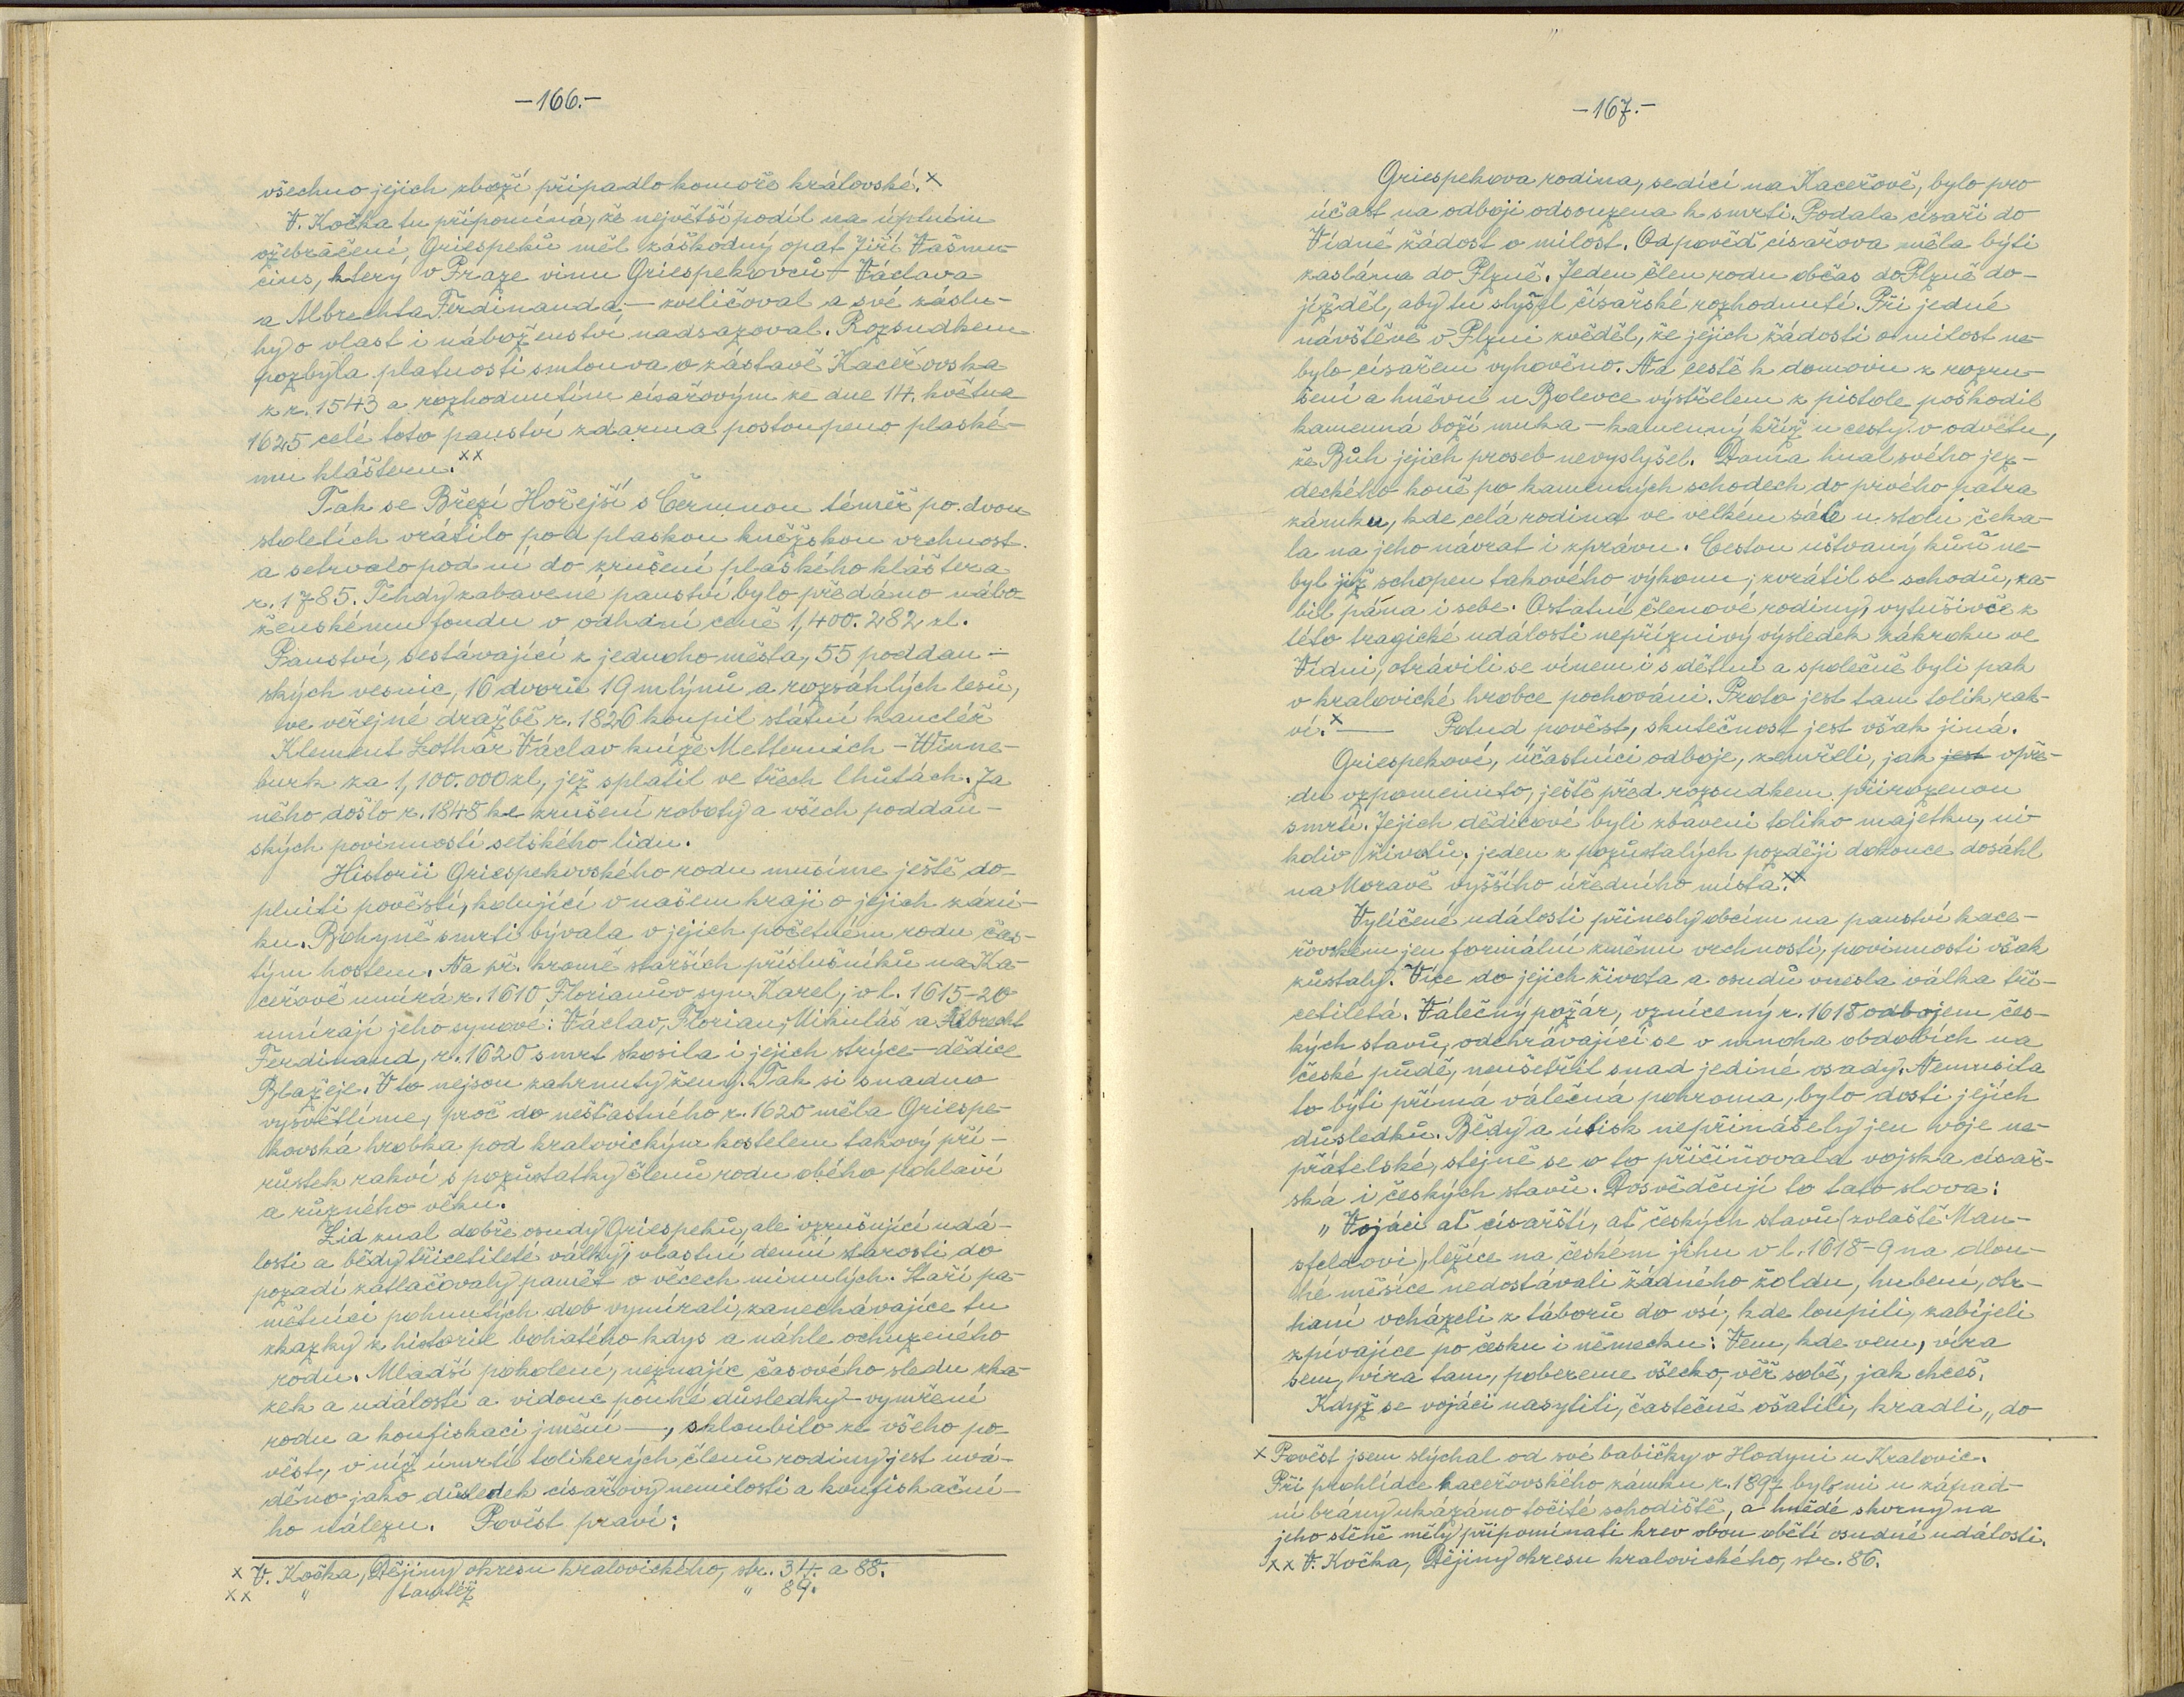 -166.-
všechno jejich zboží připadlo komoře královské.x
V. Kočka tu připomíná, že největší podíl na úplném
ožebračení Griespeků měl záškodný opat Jiří Vašmu-
cius, který v Praze vinu Griespekovců - Václava
a Albrechta Ferdinanda - zveličoval a své záslu-
hy o vlast i náboženství nadsazoval. Rozsudkem
pozbyla platnosti smlouva o zástavě Kaceřovska
z r. 1543 a rozhodnutím císařovým ze dne 14. května
1625 celé toto panství zdarma postoupeno plaské-
mu klášteru.xx
Tak se Březí Hořejší s Čermnou téměř po dvou
stoletích vrátilo pod plaskou kněžskou vrchnost
a setrvalo pod ní do zrušení plaského kláštera
r. 1785. Tehdy zabavené panství bylo předáno nábo-
ženskému fondu v odhadní ceně 1,400.282 zl.
Panství, sestávající z jednoho města, 55 poddan-
ských vesnic, 16 dvorů 19 mlýnů a rozsáhlých lesů,
ve veřejné dražbě r. 1826 koupil státní kancléř
Klement Lothar Václav kníže Metternich - Winne-
burk za 1,100.000 zl, jež splatil ve třech lhůtách. Za
něho došlo r. 1848 ke zrušení roboty a všech poddan-
ských povinností selského lidu.
Historii Griespekovského rodu musíme ještě do-
plniti pověstí, kolující v našem kraji o jejich záni-
ku. Bohyně smrti bývala v jejich početném rodu čas-
tým hostem. Na př. kromě starších příslušníků na Ka-
ceřově umírá r. 1610 Florianův syn Karel; v l. 1615-20
umírají jeho synové: Václav, Florian, Mikuláš a Albrecht
Ferdinand, r. 1620 smrt skosila i jejich strýce - dědice
Blažeje. V to nejsou zahrnuty ženy. Tak si snadno
vysvětlíme, proč do nešťastného r. 1620 měla Griespe-
kovská hrobka pod kralovickým kostelem takový pří-
růstek rakví s pozůstatky členů rodu obého pohlaví
a různého věku.
Lid znal dobře osudy Griespeků, ale vzrušující udá-
losti a bědy třicetileté války, vlastní denní starosti do
pozadí zatlačovaly paměť o věcech minulých. Staří pa-
mětníci pohnutých dob vymírali, zanechávajíce tu
zkazky z historie bohatého kdys a náhle ochuzeného
rodu. Mladší pokolení, neznajíc časového sledu zka-
zek a událostí a vidouc pouhé důsledky - vymření
rodu a konfiskaci jmění -, skloubilo ze všeho po-
věst, v níž úmrtí tolikerých členů rodiny jest uvá-
děno jako důsledek císařovy nemilosti a konfiskační-
ho nálezu. Pověst praví:
x V. Kočka, Dějiny okresu kralovického, str. 34. a 88.
xx " tamtéž " 89.
-167.-
Griespekova rodina, sedící na Kaceřově, bylo pro
účast na odboji odsouzena k smrti. Podala císaři do
Vídně žádost o milost. Odpověď císařova měla býti
zaslána do Plzně. Jeden člen rodu občas do Plzně do-
jížděl, aby tu slyšel císařské rozhodnutí. Při jedné
návštěvě v Plzni zvěděl, že jejich žádosti o milost ne-
bylo císařem vyhověno. Na cestě k domovu z rozru-
šení a hněvu u Bolevce výstřelem z pistole poškodil
kamenná boží muka - kamenný kříž u cesty v odvetu,
že Bůh jejich proseb nevyslyšel. Doma hnal svého jez-
deckého koně po kamenných schodech do prvého patra
zámku, kde celá rodina ve velkém sále u stolu čeka-
la na jeho návrat i zprávu. Cestou uštvaný kůň ne-
byl již schopen takového výkonu, zvrátil se schodů, za-
bil pána i sebe. Ostatní členové rodiny, vytušivše z
této tragické události nepříznivý výsledek zákroku ve
Vídni, otrávili se vínem i s dětmi a společně byli pak
v kralovické hrobce pochováni. Proto jest tam tolik rak-
ví.x - Potud pověst, skutečnost jest však jiná.
Griespekové, účastníci odboje, zemřeli, jak jest vpře-
du vzpomenuto, ještě před rozsudkem přirozenou
smrtí. Jejich dědicové byli zbaveni toliko majetku, ni-
koliv životů; jeden z pozůstalých později dokonce dosáhl
na Moravě vyššího úředního místa.xx
Vylíčené události přinesly obcím na panství kace-
řovském jen formální změnu vrchností, povinnosti však
zůstaly. Více do jejich života a osudů vnesla válka tři-
cetiletá. Válečný požár, vznícený r. 1618 odbojem čes-
kých stavů, odehrávající se v mnoha obdobích na
české půdě, neušetřil snad jediné osady. Nemusila
to býti přímá válečná pohroma, bylo dosti jejích
důsledků. Bědy a útisk nepřinášely jen voje ne-
přátelské, stejně se o to přičiňovala vojska císař-
ská i českých stavů. Dosvědčují to tato slova:
"Vojáci ať císařští, ať českých stavů (zvlaště Man-
sfeldovi), ležíce na českém jihu v l. 1618-9 na dlou-
hé měsíce nedostávali žádného žoldu, hubení, otr-
haní vcházeli z táborů do vsí, kde loupili, zabíjeli
zpívajíce po česku i německu: Vem, kde vem, víra
sem, víra tam, pobereme všecko, věř sobě, jak chceš.
Když se vojáci nasytili, částečně ošatili, kradli „do
x Pověst jsem slýchal od své babičky v Hodyni u Kralovic.
Při prohlídce kaceřovského zámku r. 1897 bylo mi u západ-
ní brány ukázáno točité schodiště, a hnědé skvrny na
jeho stěně měly připomínati krev obou obětí osudné události.
xx V. Kočka, Dějiny okresu kralovického, str. 86.